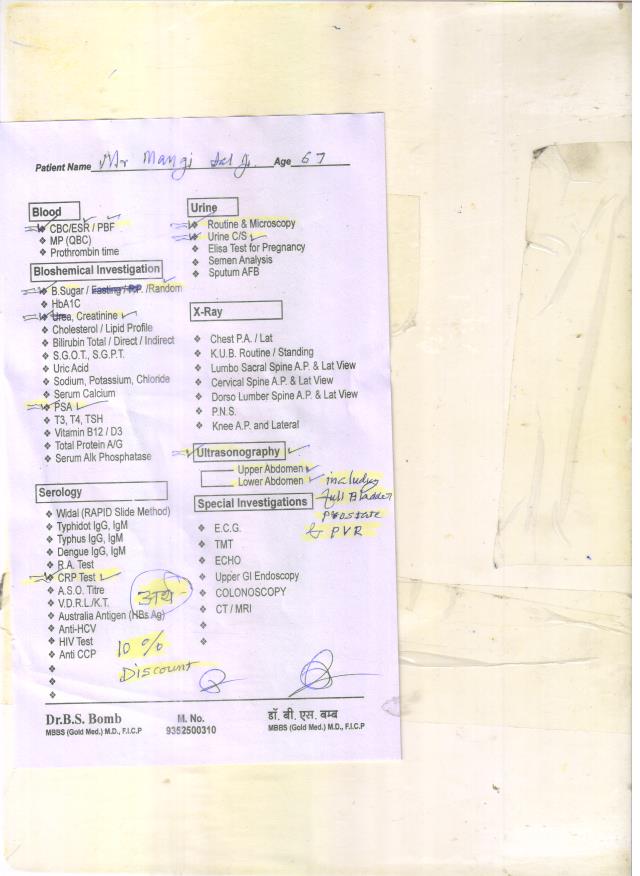 Patient Name Mr Mangi Lal Ji. Age 67
Blood
❖ CBC/ESR / PBF
❖ MP (QBC)
❖ Prothrombin time
Bioshemical Investigation
❖ B.Sugar / Fasting / P.P. /Random
❖ HbA1C
❖ Urea, Creatinine
❖ Cholesterol / Lipid Profile
❖ Bilirubin Total / Direct / Indirect
❖ S.G.O.T., S.G.P.T.
❖ Uric Acid
❖ Sodium, Potassium, Chloride
❖ Serum Calcium
❖ PSA
❖ T3, T4, TSH
❖ Vitamin B12 / D3
❖ Total Protein A/G
❖ Serum Alk Phosphatase
Serology
❖ Widal (RAPID Slide Method)
❖ Typhidot IgG, IgM
❖ Typhus IgG, IgM
❖ Dengue IgG, IgM
❖ R.A. Test
❖ CRP Test
❖ A.S.O. Titre
❖ V.D.R.L./K.T.
❖ Australia Antigen (HBs Ag)
❖ Anti-HCV
❖ HIV Test
❖ Anti CCP
❖
❖
❖
10 %
Discount
Urine
❖ Routine & Microscopy
❖ Urine C/S
❖ Elisa Test for Pregnancy
❖ Semen Analysis
❖ Sputum AFB
X-Ray
❖ Chest P.A. / Lat
❖ K.U.B. Routine / Standing
❖ Lumbo Sacral Spine A.P. & Lat View
❖ Cervical Spine A.P. & Lat View
❖ Dorso Lumber Spine A.P. & Lat View
❖ P.N.S.
❖ Knee A.P. and Lateral
Ultrasonography
Upper Abdomen
Lower Abdomen
including
full Bladder
Prostate
& PVR
Special Investigations
❖ E.C.G.
❖ TMT
❖ ECHO
❖ Upper GI Endoscopy
❖ COLONOSCOPY
❖ CT / MRI
❖
❖
Dr.B.S. Bomb
MBBS (Gold Med.) M.D., F.I.C.P
M. No.
9352500310
डॉ. बी. एस. बम्ब
MBBS (Gold Med.) M.D., F.I.C.P